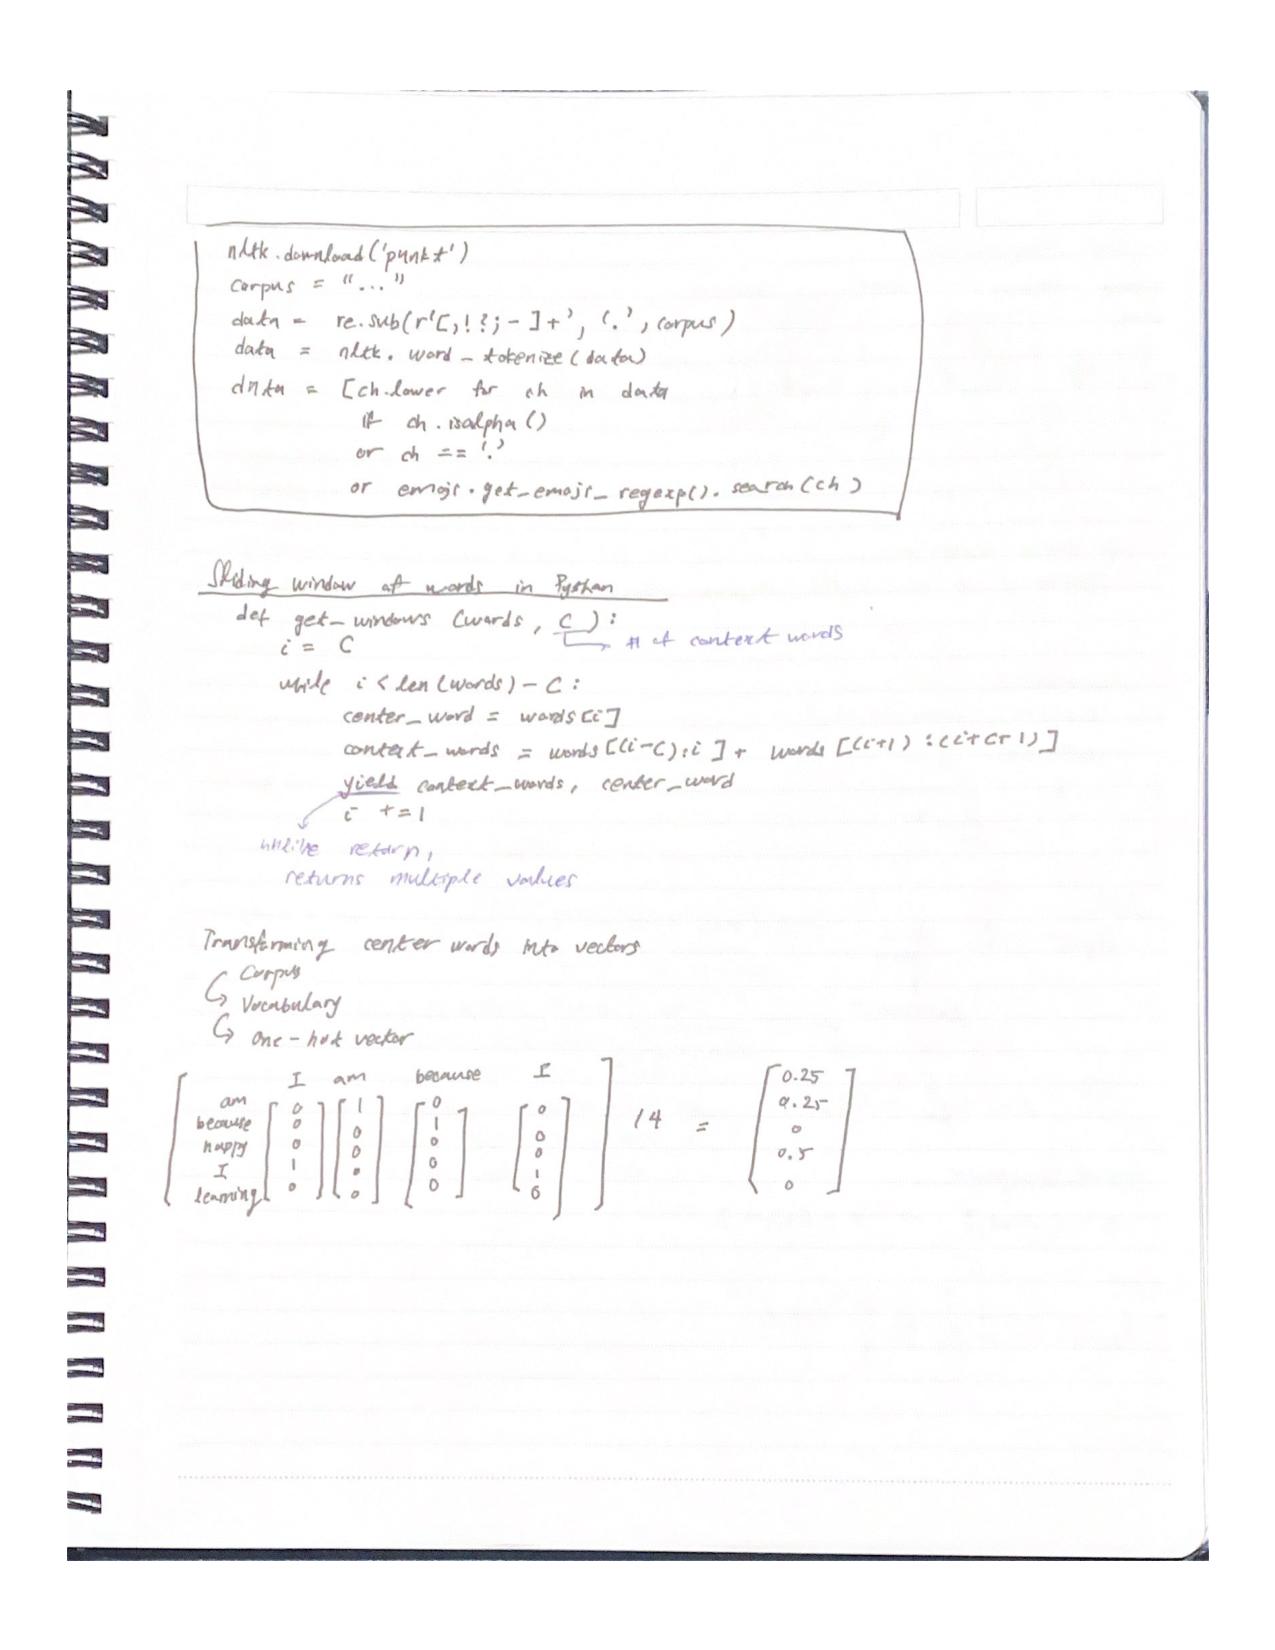 nltk.download('punkt')
corpus = "..."
data = re.sub(r'[,!?;-]+', '.', corpus)
data = nltk.word_tokenize(data)
data = [ch.lower for ch in data
if ch.isalpha()
or ch == '.'
or emoji.get_emoji_regexp().search(ch)
Sliding window of words in Python
def get_windows (words, C):
# of context words
i = C
while i < len(words) - C:
center_word = words[i]
context_words = words[(i-C):i] + words[(i+1):(i+C+1)]
yield context_words, center_word
i += 1
unlike return,
returns multiple values
Transforming center words into vectors
Corpus
Vocabulary
One-hot vector
I am because I
am 0 1 0 0 0.25
because 0 0 1 0 0.25
happy 0 0 0 0 /4 = 0
I 1 0 0 1 0.5
learning 0 0 0 0 0